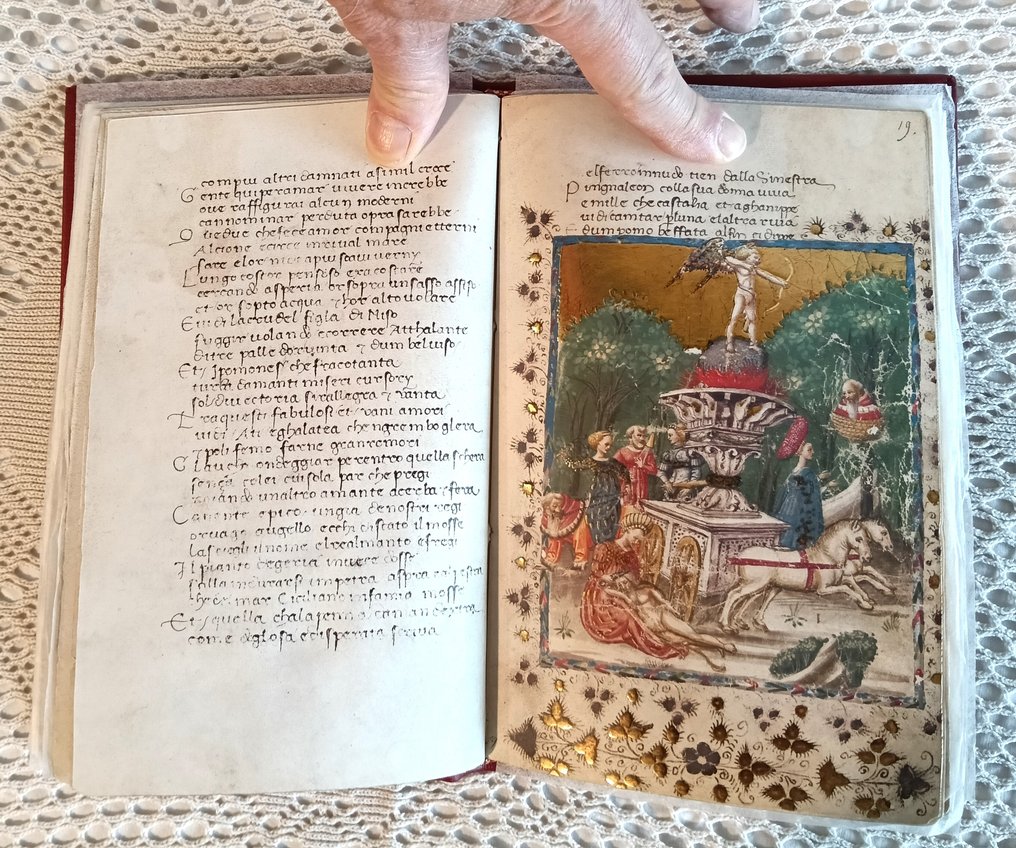 compiu altri damnati asimil croce
Gente qui peramar vivere increbbe
ove raffigurai alcun moderni
cannominar perduta opra sarebbe
Quei due che fece amor compagni etterni
Alcione
fare elor nidi apiu soavi verny
Lungo costor pensoso era costare
cercando asperia or sopra un sasso assiso
et or sotto acqua 7 hor alto volare
Et vidi la crudel figla di Niso
fuggir volando 7 correre Atthalante
di tre palle doro vinta 7 dum bel viso
Et ypomones che fra cotanta
turba damanti miseri cursory
sol di victoria si rallegra 7 vanta
Fra questi fabulosi et vani amori
vidi eghalatea chengrembo glera
7 poli femo farne gran romori
Glauch ondeggiar per entro quella schera
senza colei cui sola par che pregi
un altro amante acerba 7 fera
Canente 7 pico un gia de nostri regi
or vago augello
lascogli il nome el real manto e fregi
Il pianto degeria
scilla indurarsi in petra aspra
che del mar Ciciliano infamia
Et quella
come dogliosa 7 disperata scriva
19.
el ferro innudo tien dalla Sinestra
Pingnaleon colla sua donna viva
e mille che castalia et aghanippe
vidi camtar
dum pomo beffata al fin cidippe